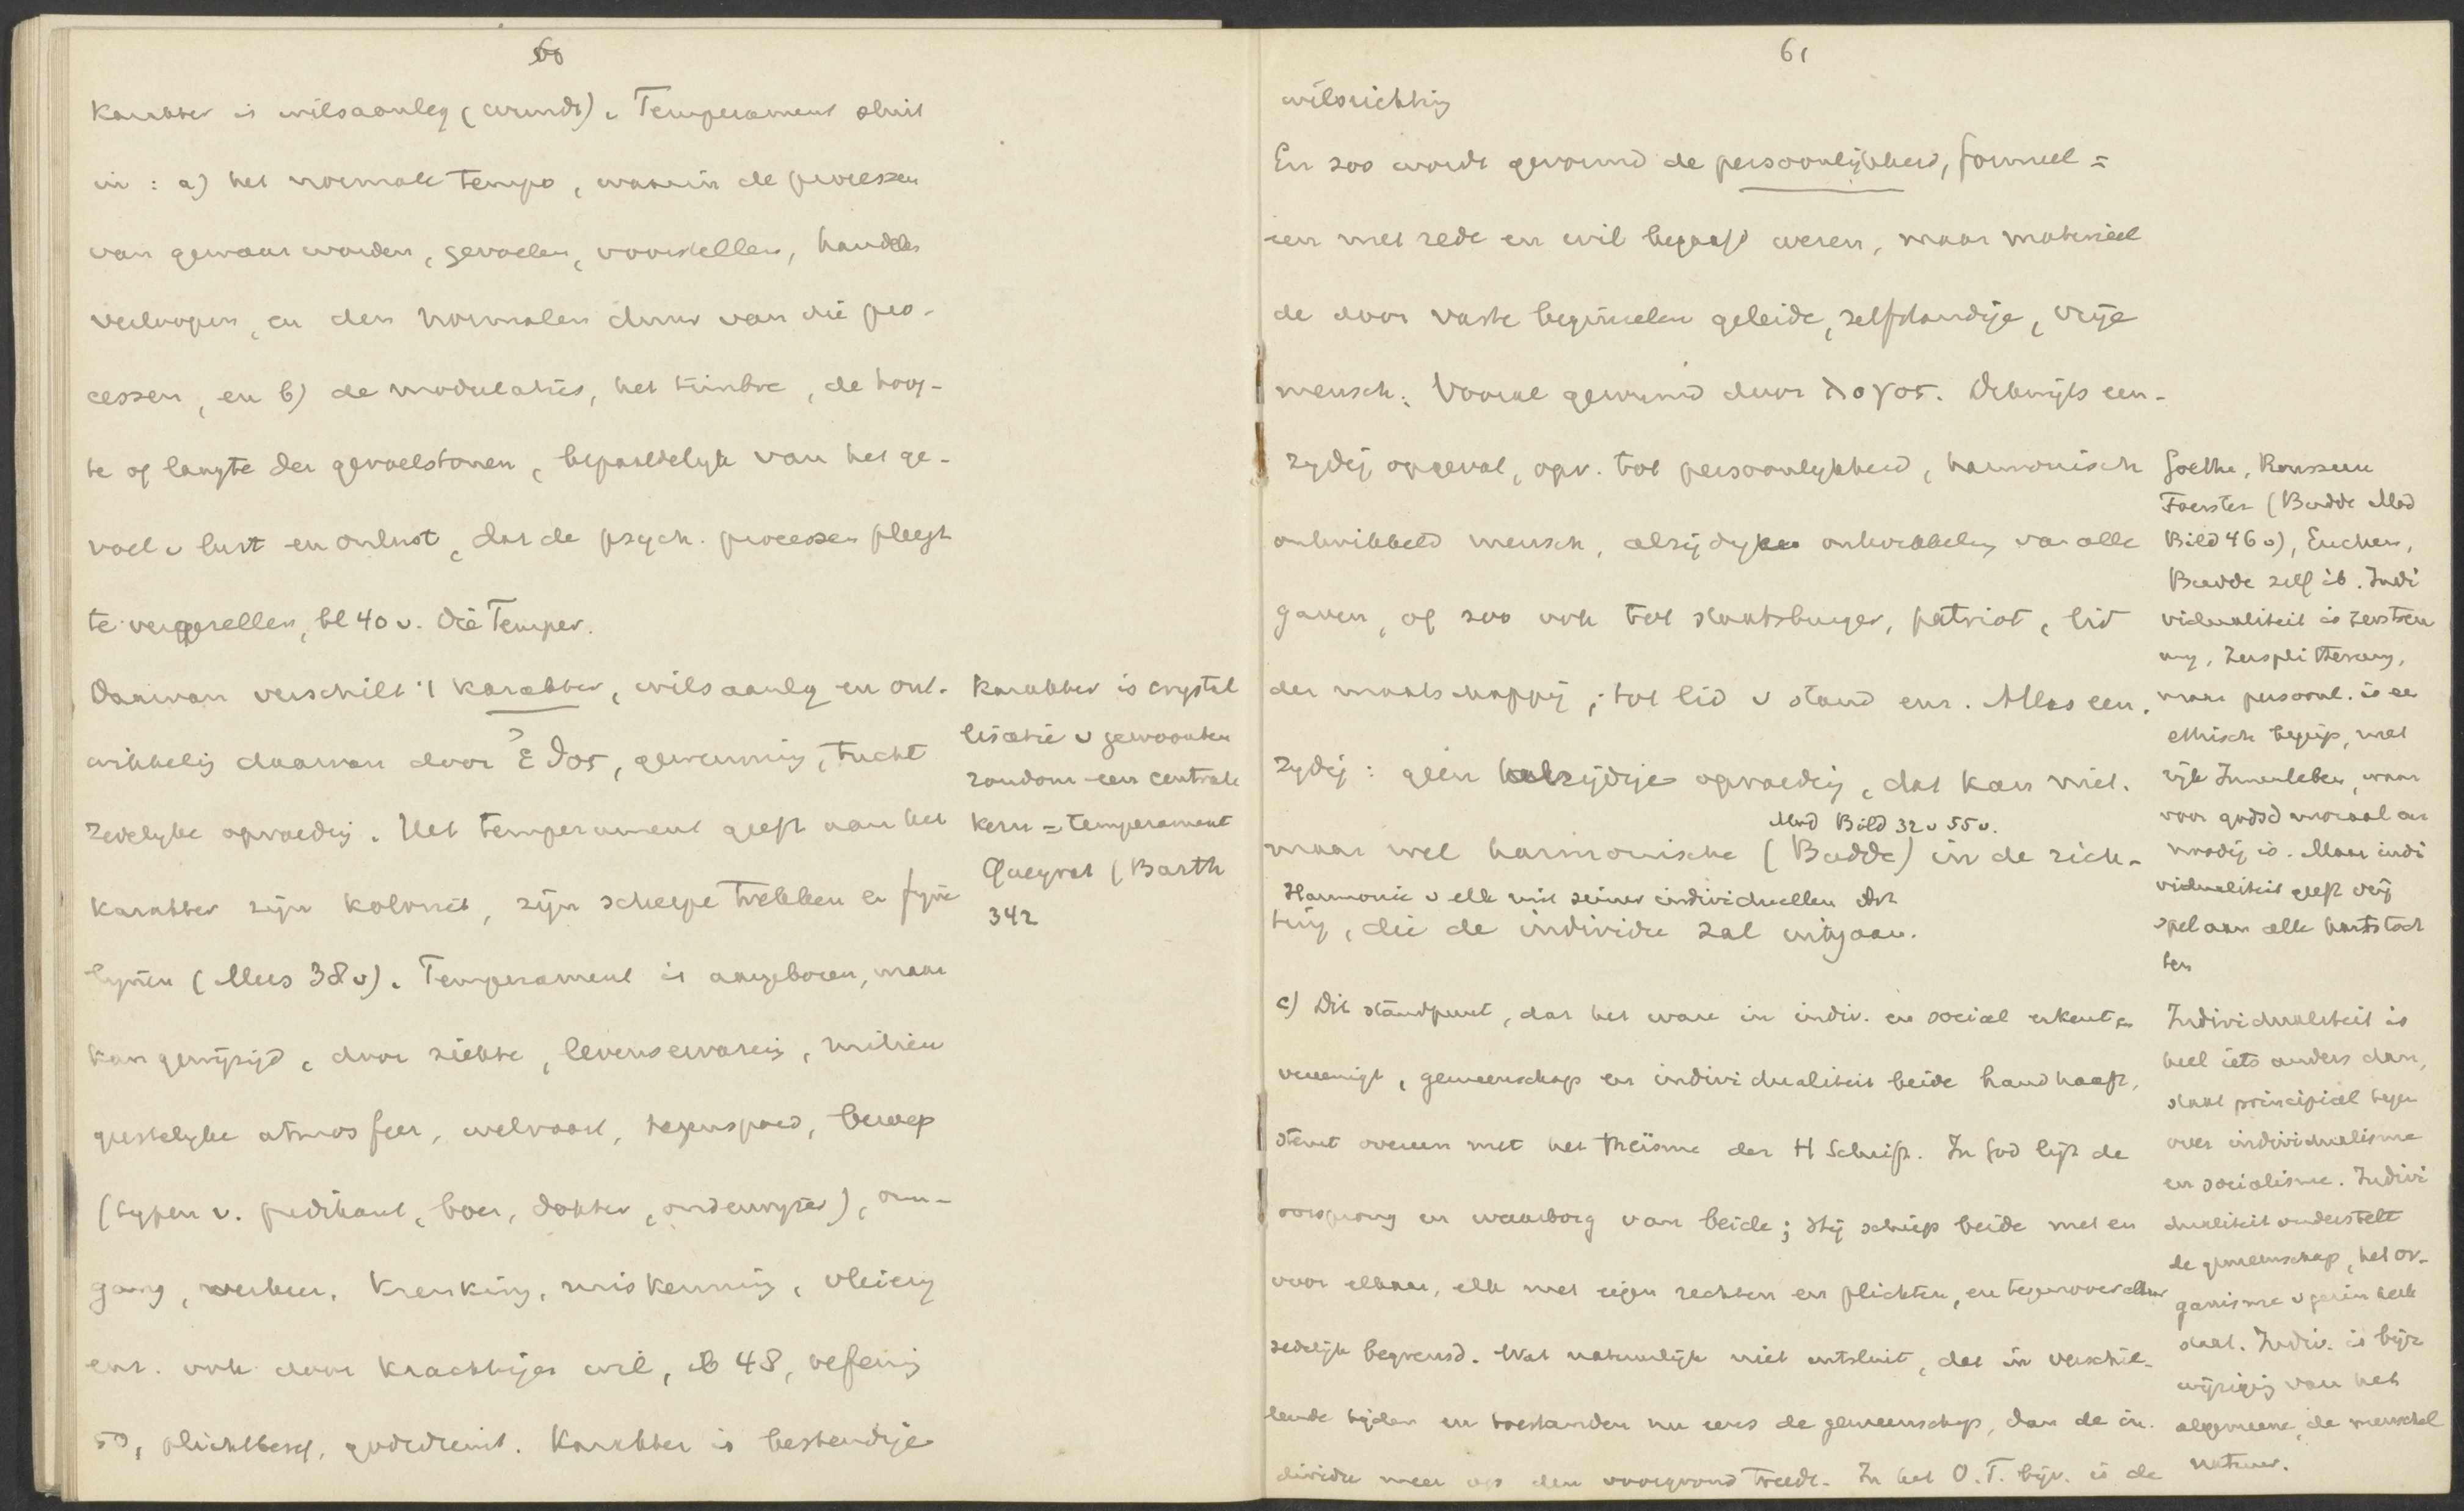 60
Karakter is wilsaanleg (Wundt). Temperament sluit
in : a) het normale tempo, waarin de processen
van gewaarworden, gevoelen, voorstellen, handelen
verloopen, en den normalen duur van die pro-
cessen, en b) de modulaties, het timbre, de hoog-
te of laagte der gevoelstonen, bepaaldelijk van het ge-
voel v lust en onlust, dat de psych. processen pleegt
te vergezellen, bl 40 v. Die Temper.
Daarvan verschilt 't karakter, wilsaanleg en ont-
wikkeling daarvan door ἔθος, gewenning, tucht
zedelijke opvoeding. Het temperament geeft aan het
karakter zijn koloriet, zijn scherpe trekken en fijne
lijnen (Mees 38 v). Temperament is aangeboren, maar
kan gewijzigd, door ziekte, levenservaring, milieu
geestelijke atmosfeer, welvaart, tegenspoed, beroep
(typen v. predikant, boer, dokter, onderwijzer), om-
gang, verkeer, krenking, miskenning, vleiery
enz. ook door krachtigen wil, ib 48, oefening
50, plichtbesef, godsdienst. Karakter is bestendige
Karakter is crystal
lisatie v gewoonten
rondom een centrale
kern = temperament
Queyrat (Barth
342
61
wilsrichting
En zoo wordt gevormd de persoonlijkheid, formeel =
een met rede en wil begaafd wezen, maar materieel
de door vaste beginselen geleide, zelfstandige, vrije
mensch. Vooral gevormd door λογος. Dikwijls een-
zydig opgevat, opv. tot persoonlykheid, harmonisch
ontwikkeld mensch, alzijdige ontwikkeling van alle
gaven, of zoo ook tot staatsburger, patriot, lid
der maatschappij, tot lid v stand enz. Alles een-
zydig : geen alzijdige opvoeding, dat kan niet.
Mod Bild 32 v 55 v.
maar wel harmonische (Budde) in de rich-
Harmonie v elk mit seiner individuellen Art
ting, die de individu zal uitgaan.
c) Dit standpunt, dat het ware in indiv. en sociaal erkent en
vereenigt, gemeenschap en individualiteit beide handhaaft,
stemt overeen met het theïsme der H Schrift. In God ligt de
oorsprong en waarborg van beide; Hij schiep beide met en
voor elkaar, elk met eigen rechten en plichten, en tegenover elkaar
zedelijk begrensd. Wat natuurlijk niet uitsluit, dat in verschil-
lende tijden en toestanden nu eens de gemeenschap, dan de in-
dividu meer op den voorgrond treedt. In het O.T. bijv. is de
Goethe, Rousseau
Foerster (Budde Mod
Bild 46 v), Eucken,
Budde zelf ib. Indi
vidualiteit is Zerstreu
ung, Zersplitterung,
maar persoonl. is een
ethisch begrip, met
rijk Innenleben, waar
voor godsd moraal en
noodig is. Maar indi
vidualiteit geeft vrij
spel aan alle hartstoch
ten
Individualiteit is
heel iets anders dan,
staat principieel tegen
over individualisme
en socialisme. Indivi
dualiteit onderstelt
de gemeenschap, het or-
ganisme v gezin kerk
staat. Indiv. is bijz
wijziging van het
algemeene, de menschel
natuur.